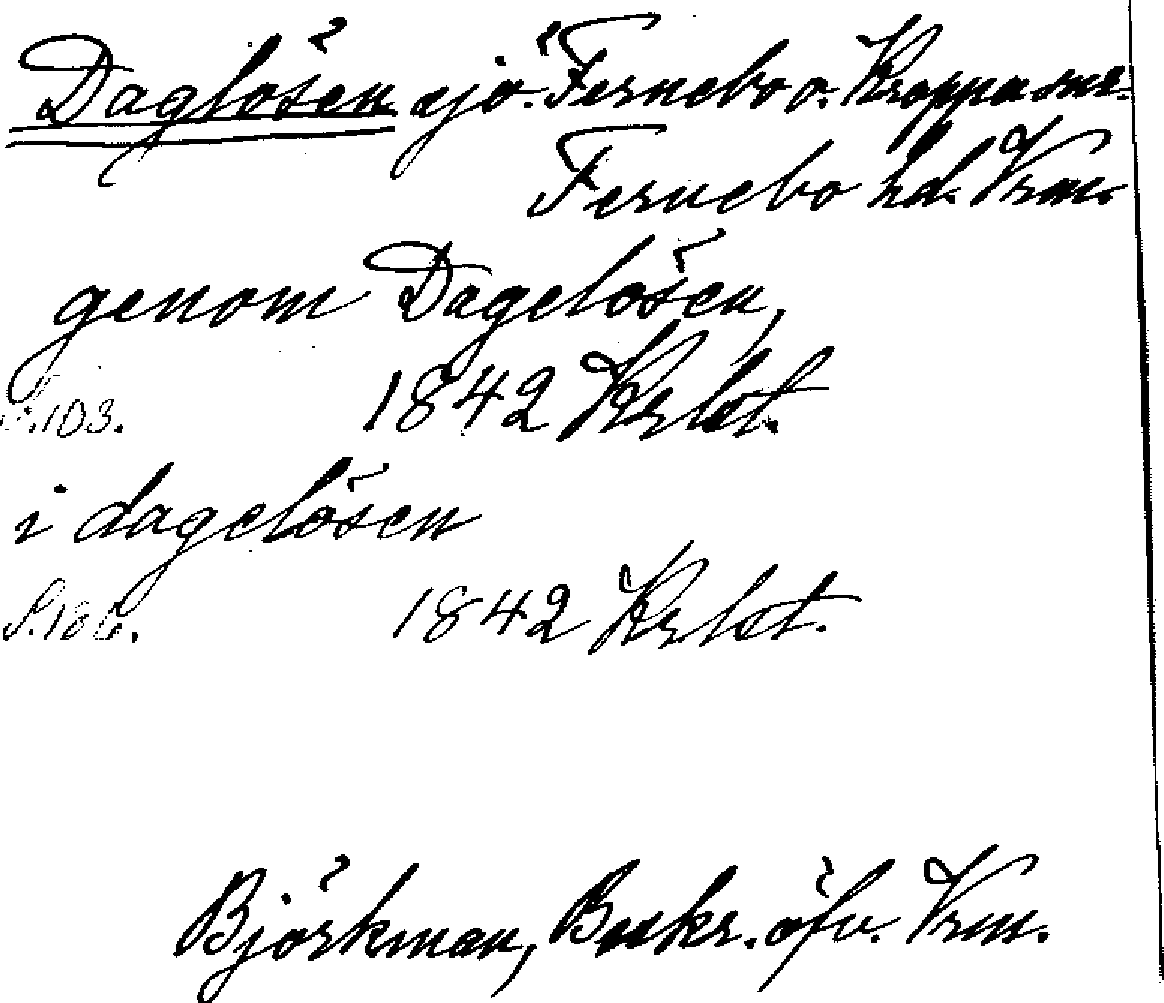 Daglösen sjö. Fernebo o. Kroppa snr.
Fernebo hd. Vrm.
genom Dagelösen,
s. 103. 1842 Krlst.
i dagelösen
S. 186. 1842 Krlst.
Björkman, Beskr. öfv. Vrm.